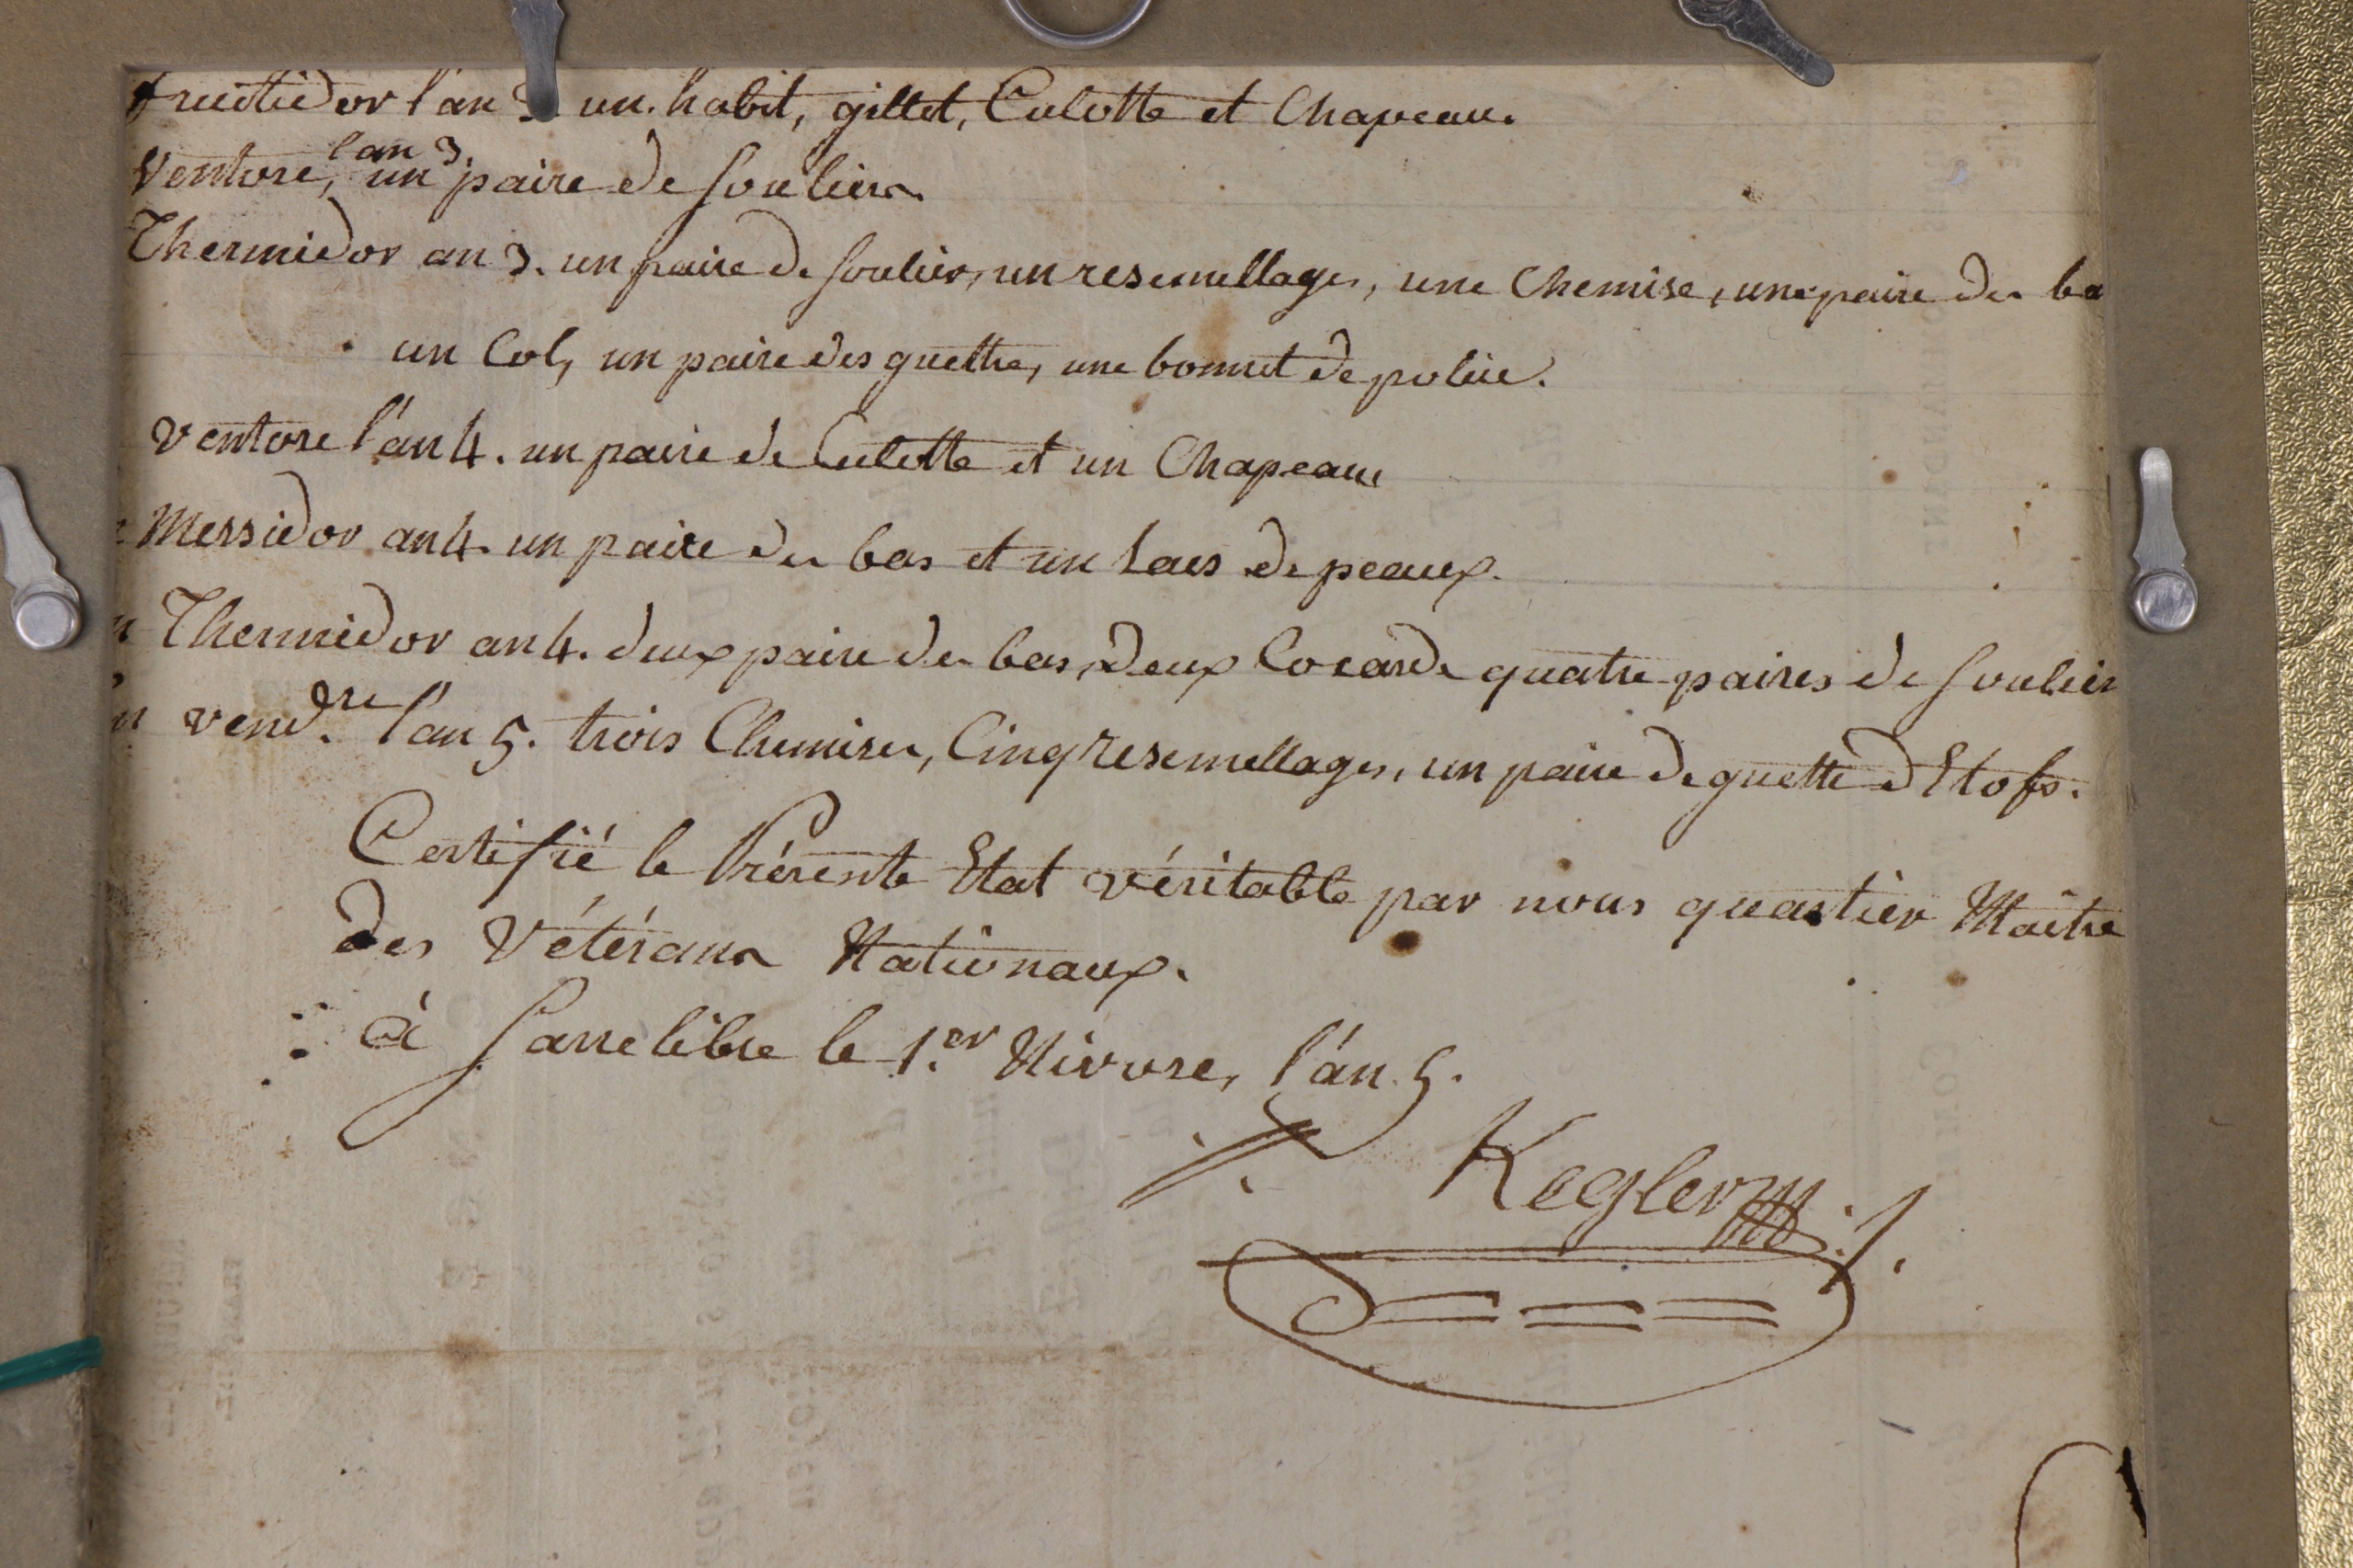 fructidor l'an un habit, gillet, Culotte et Chapeau.
l'an 3.
Ventose, un paire de Souliers
Thermidor an 3. un paire de Soulier, un resemellages, une Chemise, une paire des ba
un Col, un paire des guettre, une bonnet de police.
Ventose l'an 4. un paire de Culotte et un Chapeau
Messidor an 4. un paire des bas et un Sacs de peaux.
Thermidor an 4. deux paire des bas, deux Cocarde quatre paires de Soulier
vend.re l'an 5. trois Chemises, Cinq resemellages, un paire de guette d'Etofs.
Certifié le Présente Etat véritable par nous quartier Maitre
des Vétérans Nationaux.
à Sarrelibre le 1.er Nivose, l'an 5.
Kegler